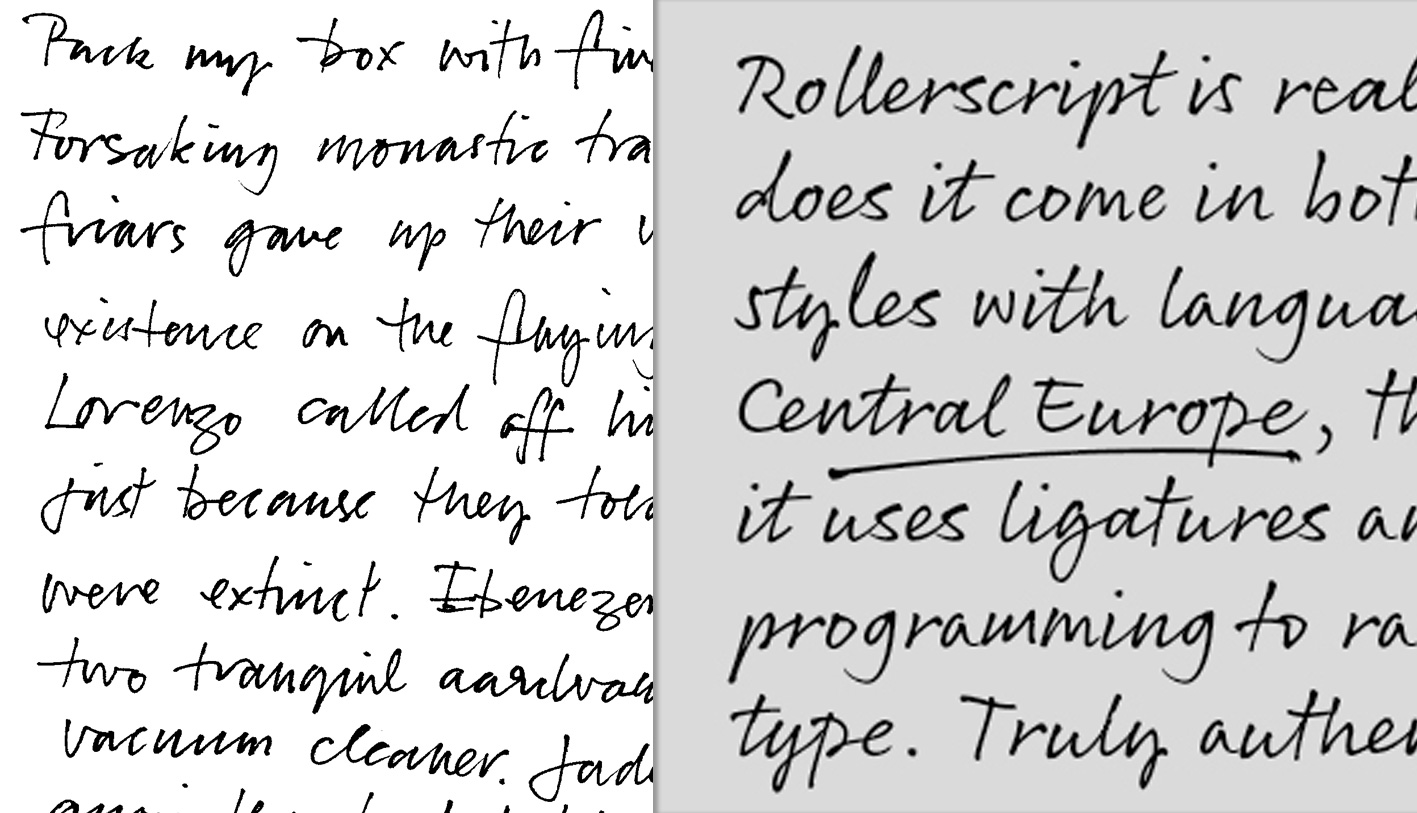 Pack my box with fiv
Forsaking monastic tra
friars gave up their
existence on the flying
Lorenzo called off hi
just because they told
were extinct. Ebenezer
two tranquil aardvar
vacuum cleaner. Jade
Rollerscript is real
does it come in both
styles with langua
Central Europe, th
it uses ligatures an
programming to ra
type. Truly authen